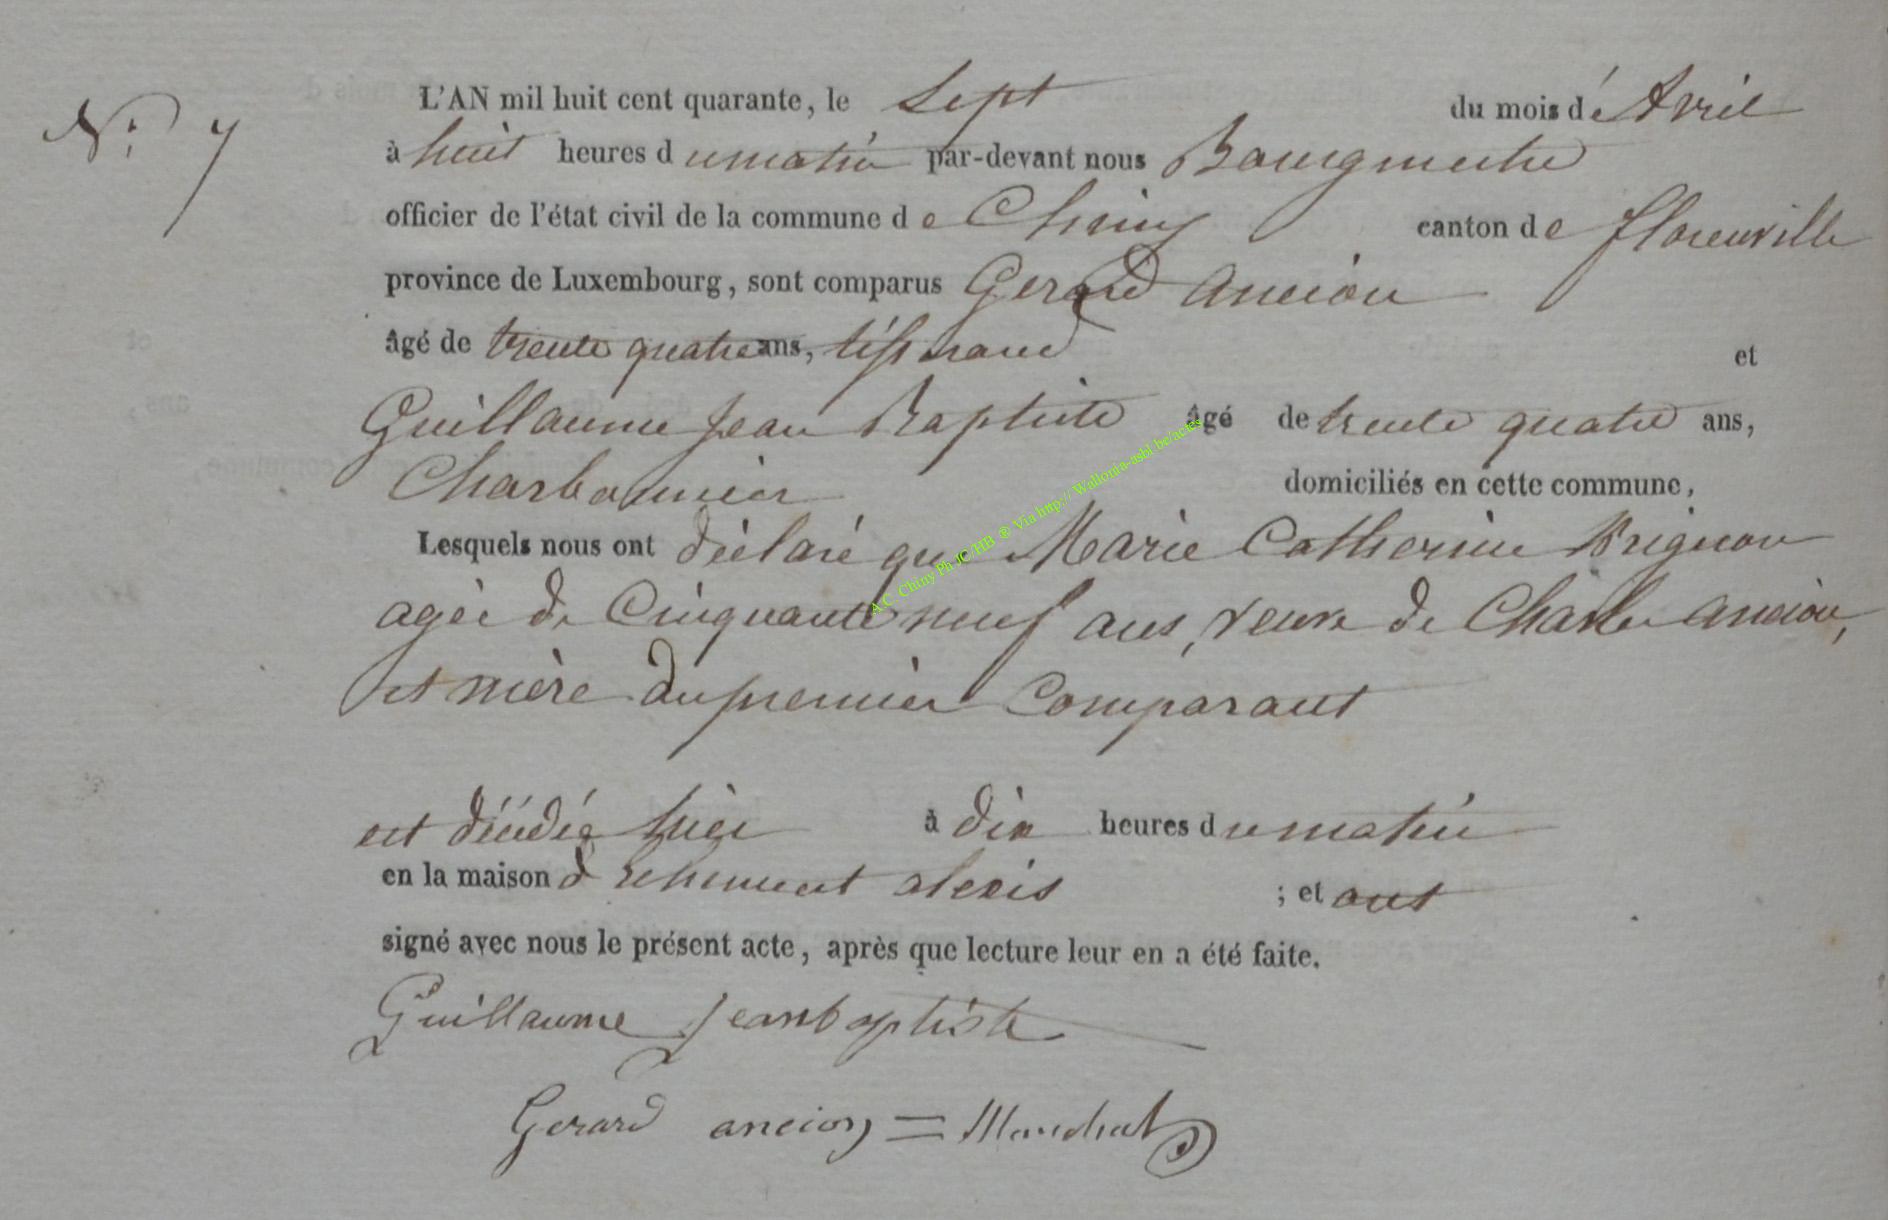 N° 7
L'AN mil huit cent quarante, le Sept du mois d'Avril
à huit heures du matin par-devant nous Bourgmestre
officier de l'état civil de la commune de Chiny canton de florenville
province de Luxembourg, sont comparus Gerard Ancion
âgé de trente quatre ans, tisserand et
Guillaume Jean Baptiste âgé de trente quatre ans,
Charbonnier domiciliés en cette commune,
Lesquels nous ont déclaré que Marie Catherine Brignon
agée de Cinquante neuf ans, veuve de Charles ancion,
et mère du premier Comparant
est décédée hier à dix heures du matin
en la maison d alexis ; et ont
signé avec nous le présent acte, après que lecture leur en a été faite.
Guillaume jeanbaptiste
Gerard ancion
A.C. Chiny Ph JC/HB ® Via http:// Wallonia-asbl.be/actes